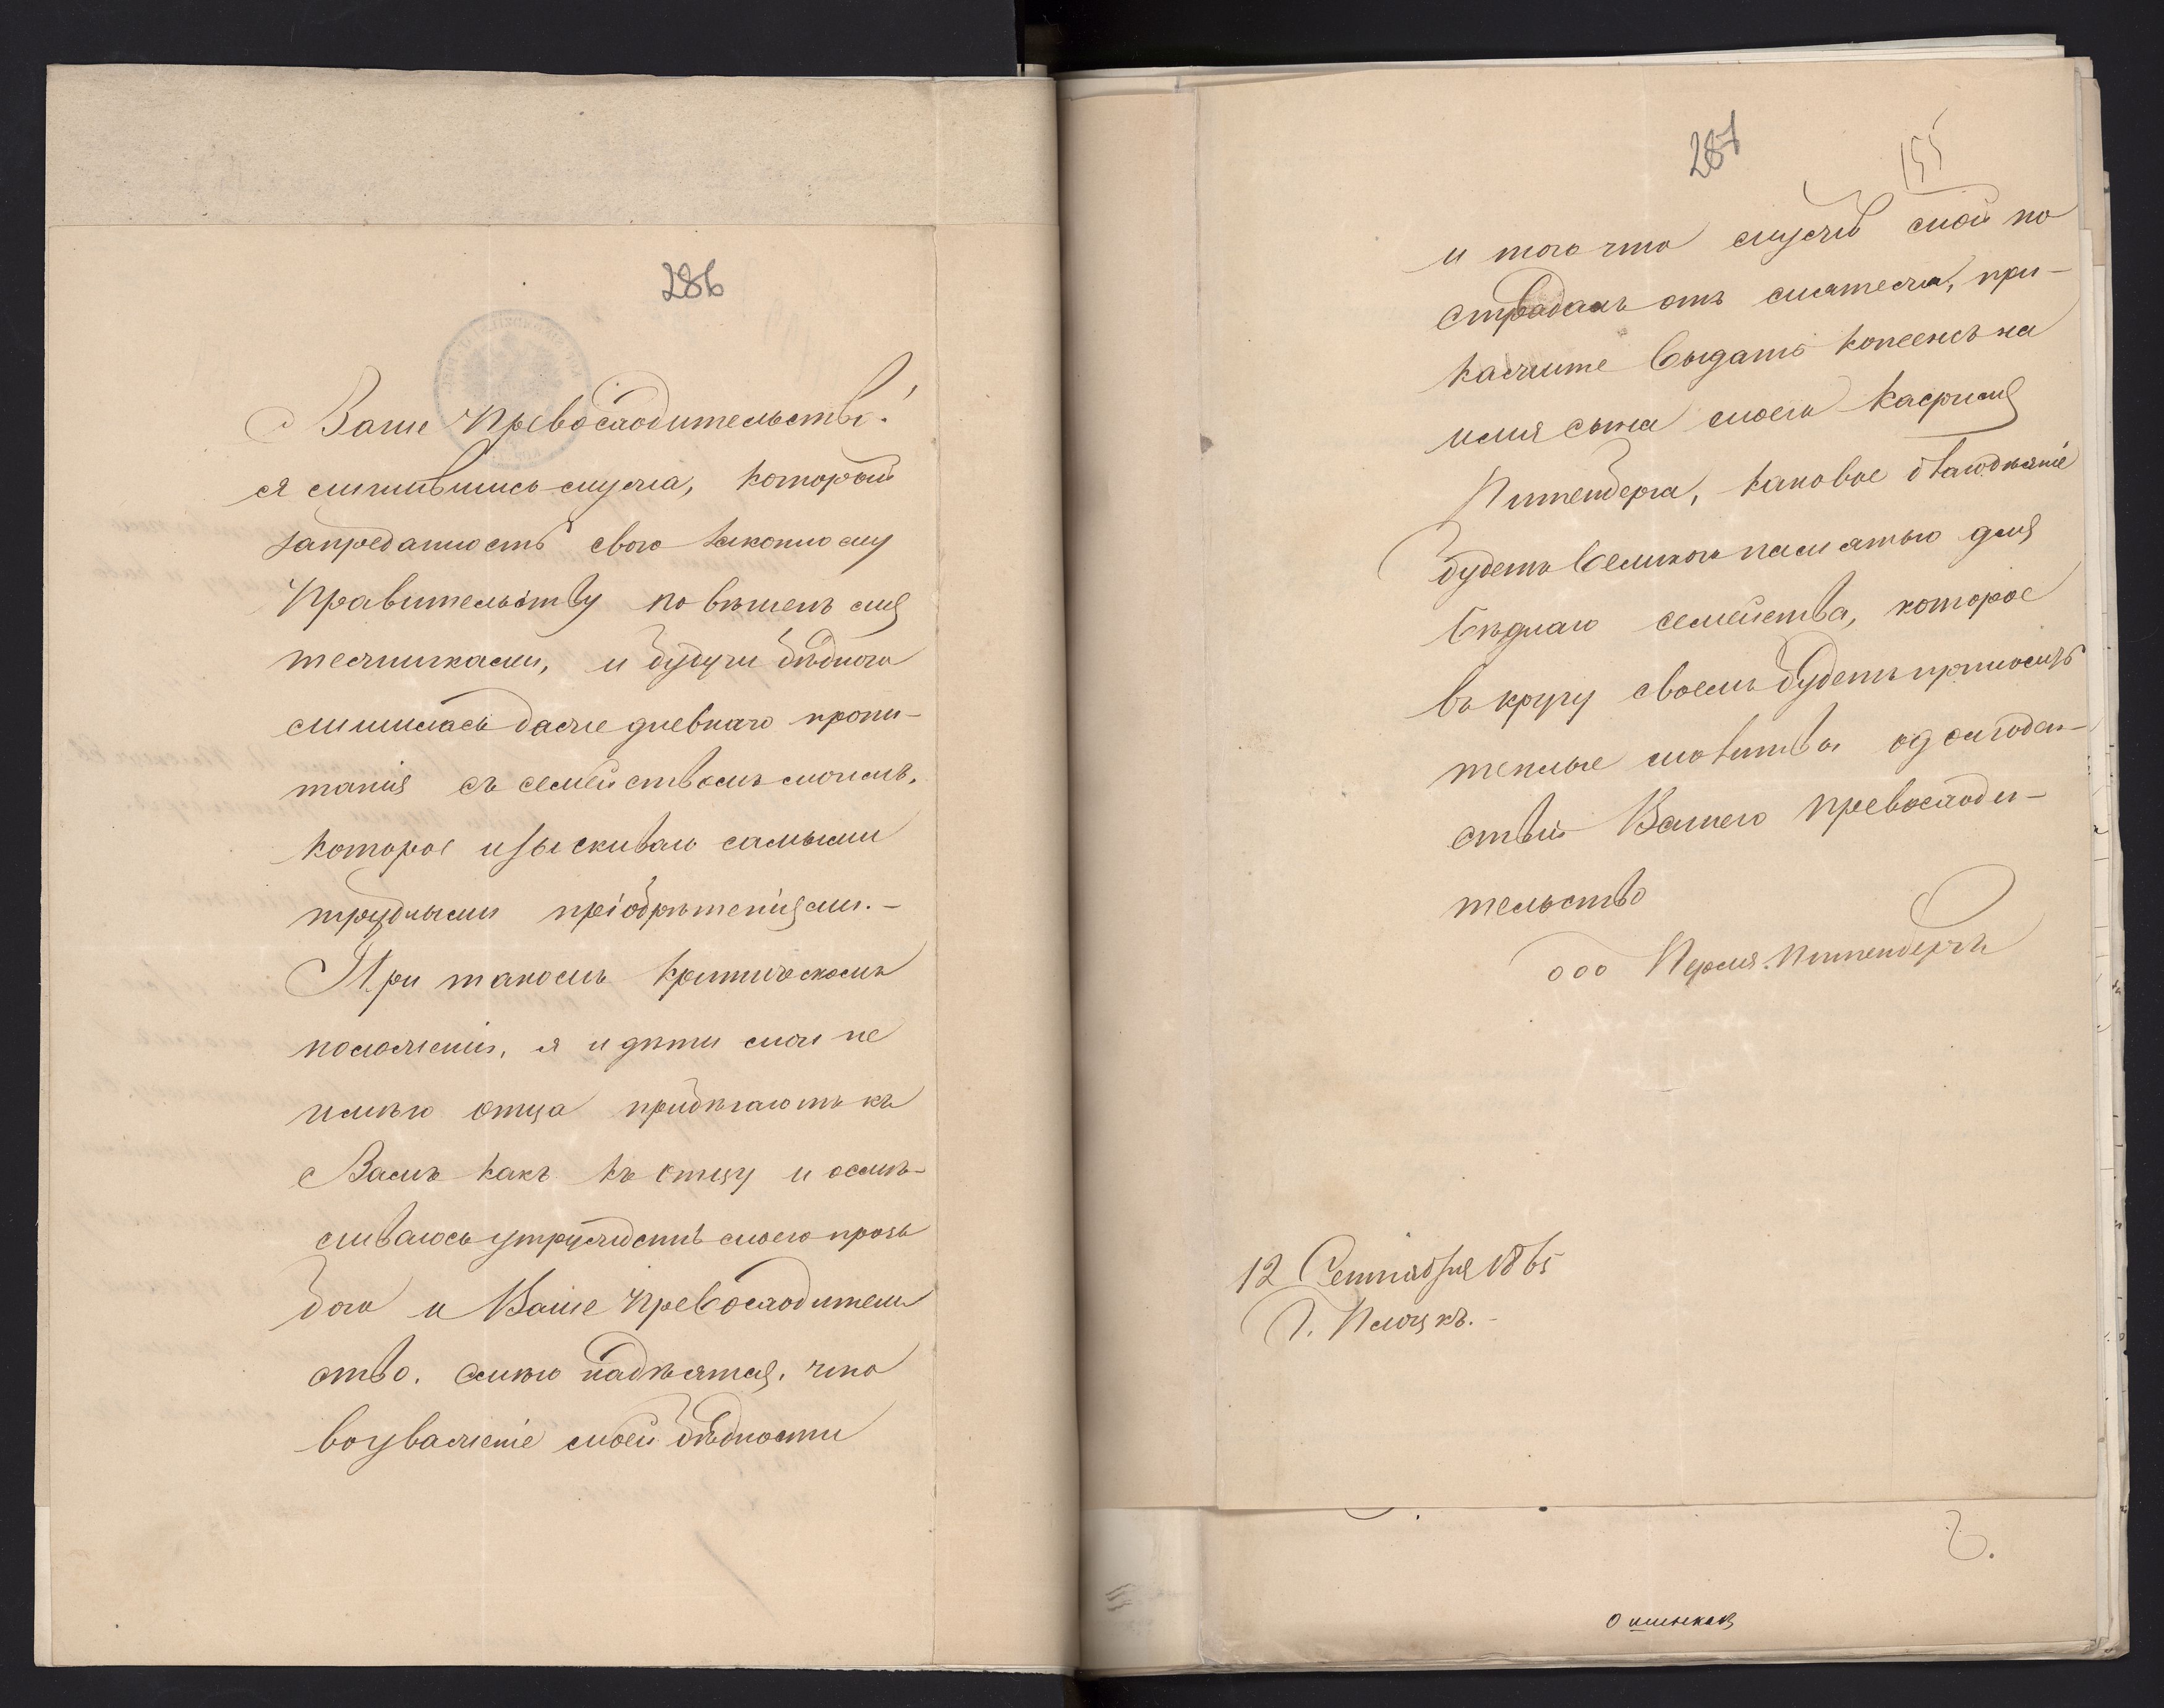 286
Ваше Превосходительство!
я лишившись мужа, который
запреданность свою законному
Правительству повѣшенъ мя
тежниками, и будучи бѣдною
лишилась даже дневнаго пропи-
танія съ семействомъ моимъ,
которое изыскиваю самыми
трудными пріобрѣтеніями.-
При такомъ критическомъ
положеніи, я и дѣти мои не
имѣю отца прибѣгаютъ къ
Вамъ какъ къ отцу и осмѣ-
ливаюсь утруждать моею прозь
бою и Ваше Превосходитель
ство. смѣю надѣятся, что
воуваженіе моей бѣдности
287
155
и того что мужъ мой по
страдалъ отъ мятежа, при-
кажите выдать консенсъ на
имя сына моего Касриля
Питенберга, каковое благодѣяніе
будетъ великою памятью для
бѣднаго семейства, которое
въ кругу своемъ будетъ приносить
теплые молитвы о благоден-
ствіи Вашего Превосходи-
тельство
ооо Перля Питенбергъ
12 Сентября 1865
Г. Плоцкъ.-